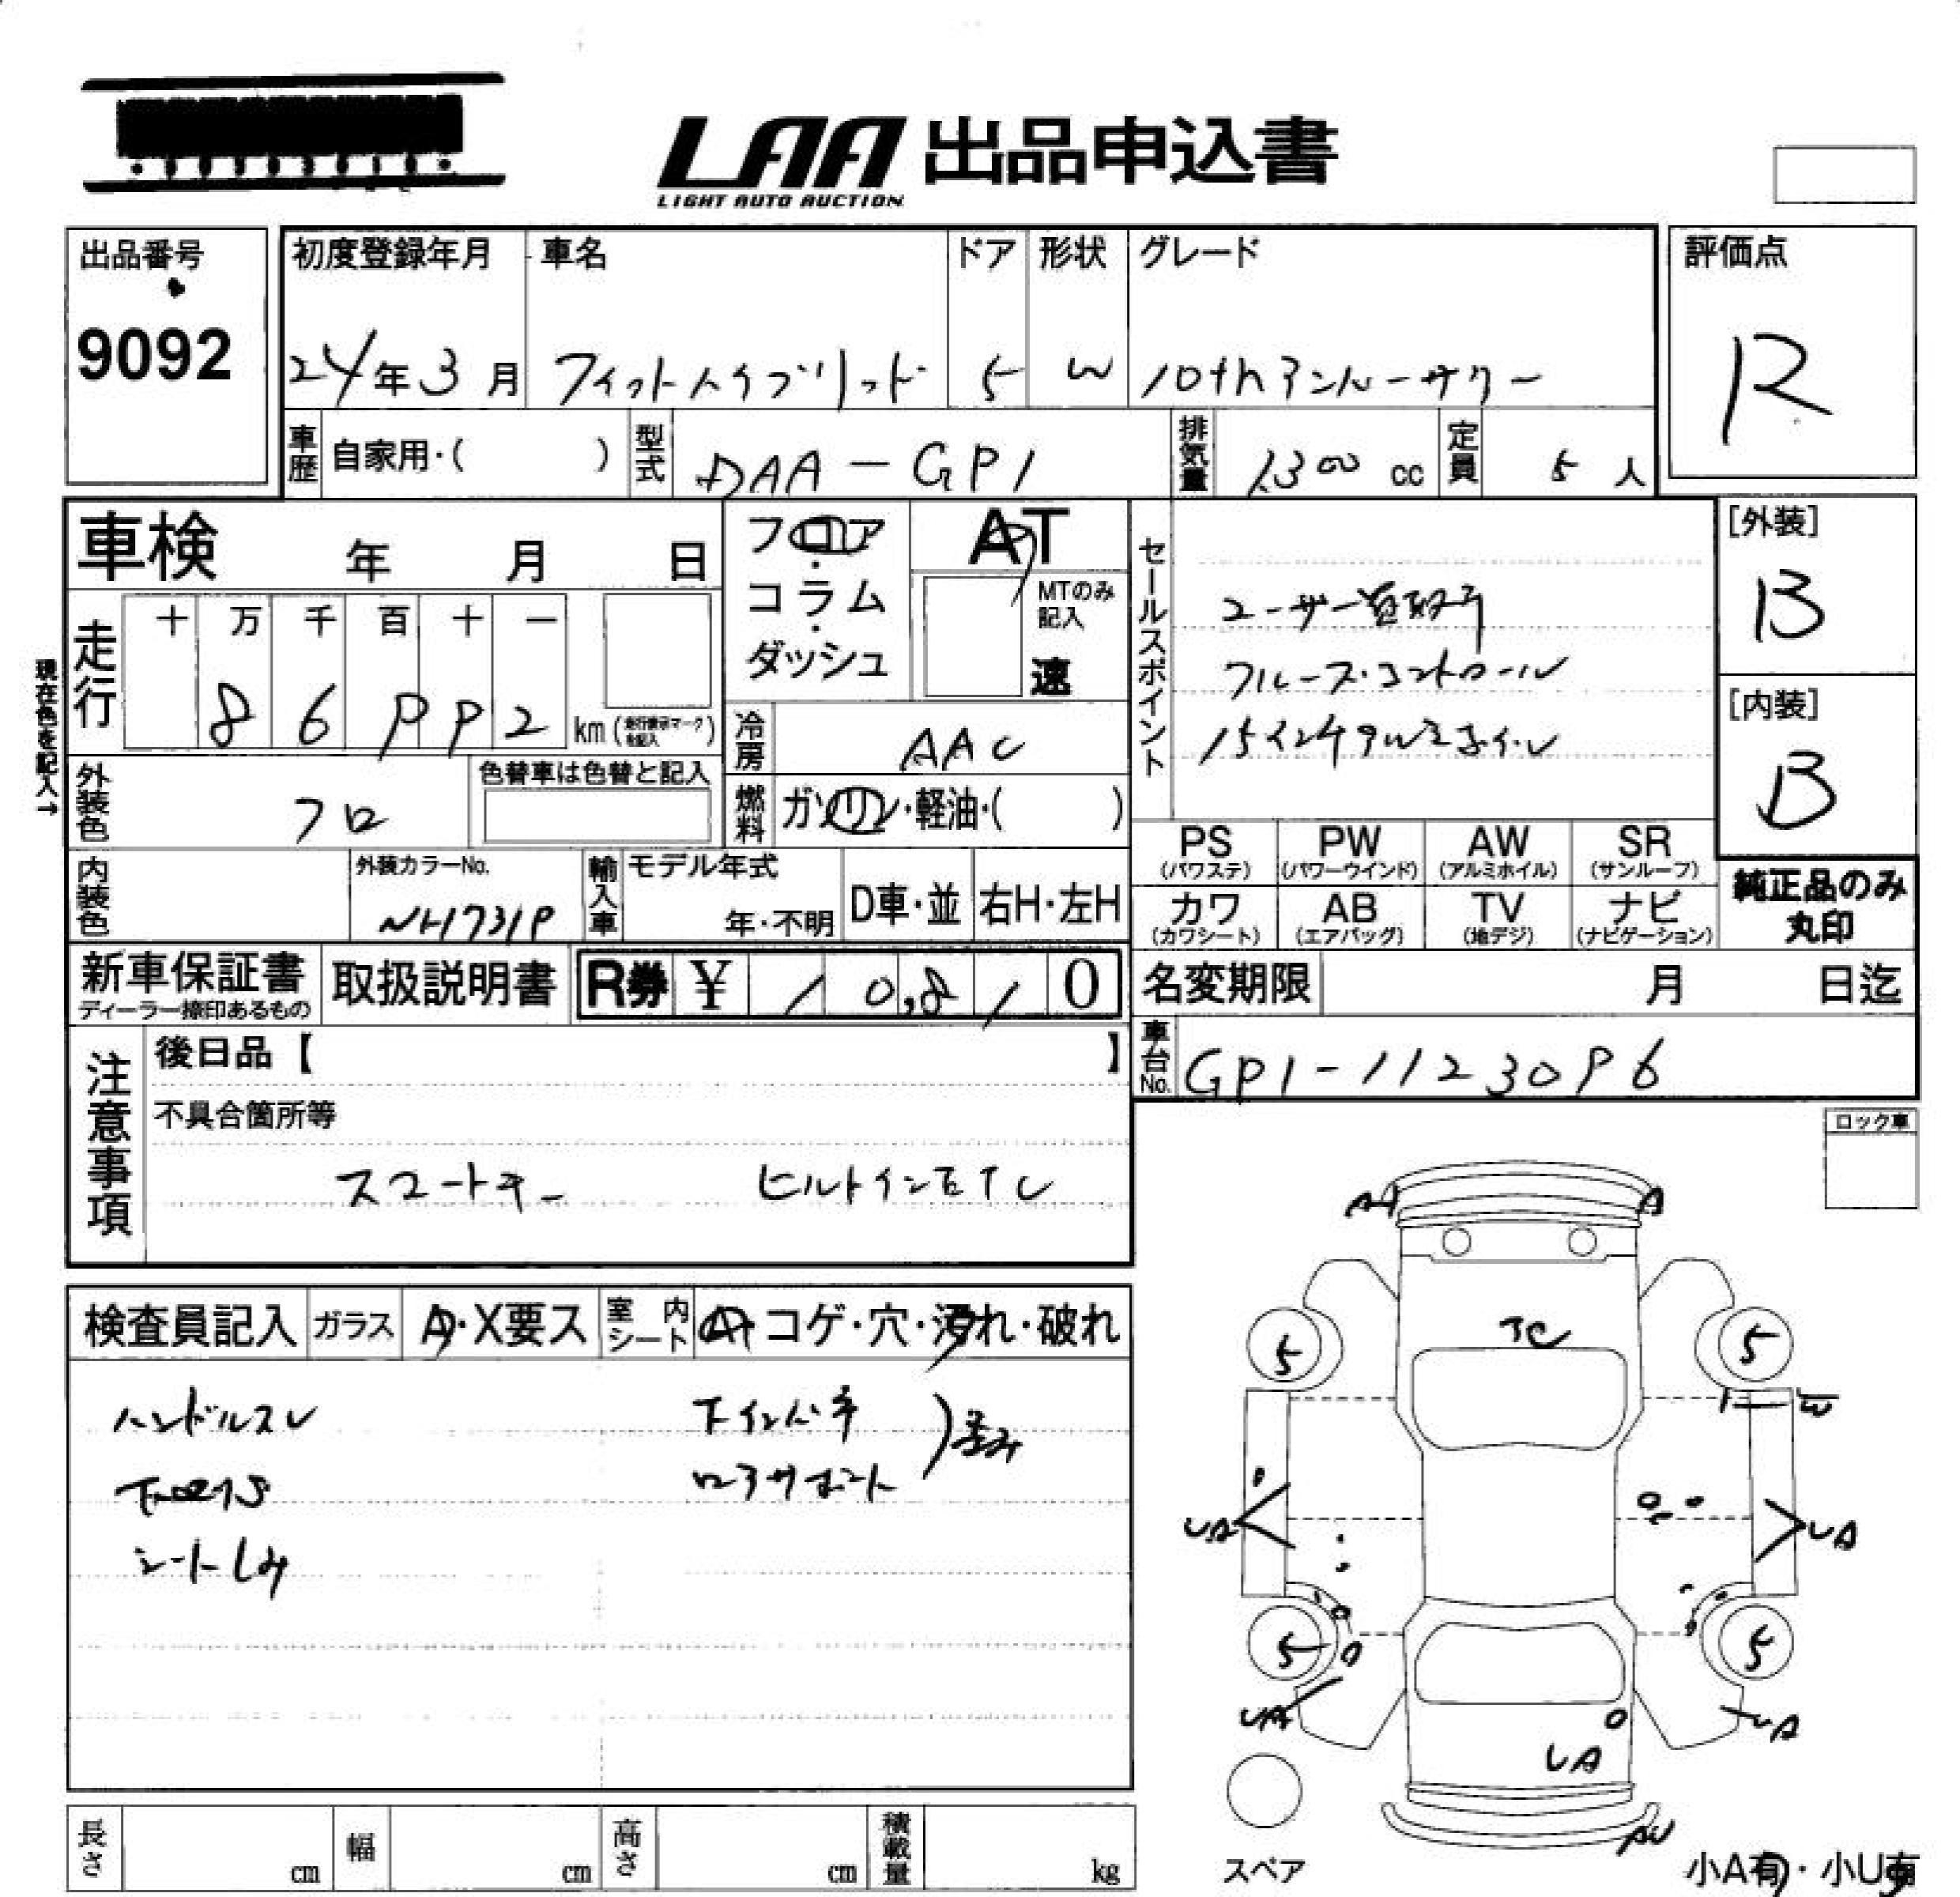 LAA 出品申込書
LIGHT AUTO AUCTION
出品番号
9092
初度登録年月
24年3月
車名
フィットハイブリッド
ドア
5
形状
W
グレード
10thアニバーサリー
評価点
R
車歴 自家用・( )
型式 DAA-GP1
排気量 1300 cc
定員 5 人
車検 年 月 日
フロア・コラム・ダッシュ
AT
MTのみ記入
速
セールスポイント
ユーザー買取車
クルーズ・コントロール
15インチAWミラーウインカー
[外装]
B
[内装]
B
走行
十 万 千 百 十 一
8 6 9 9 2 km (走行表示マークを記入)
現在色を記入→
冷房 AAC
外装色 クロ
色替車は色替と記入
燃料 ガソリン・軽油・( )
内装色
外装カラーNo.
NH731P
輸入車
モデル年式
年・不明
D車・並
右H・左H
PS (パワステ)
PW (パワーウインド)
AW (アルミホイル)
SR (サンルーフ)
カワ (カワシート)
AB (エアバッグ)
TV (地デジ)
ナビ (ナビゲーション)
純正品のみ丸印
新車保証書
ディーラー捺印あるもの
取扱説明書
R券 ¥ 10,810
名変期限 月 日迄
車台No. GP1-1123096
注意事項
後日品【 】
不具合箇所等
スマートキー ビルトインETC
ロック車
検査員記入
ガラス A・X要ス
室内シート A・コゲ・穴・汚れ・破れ
ハンドルスレ
シートしみ
コアサポート
歪み
A
TC
5
5
W
UA
UA
5
5
UA
UA
UA
AU
スペア
小A有・小U有
長さ cm
幅 cm
高さ cm
積載量 kg